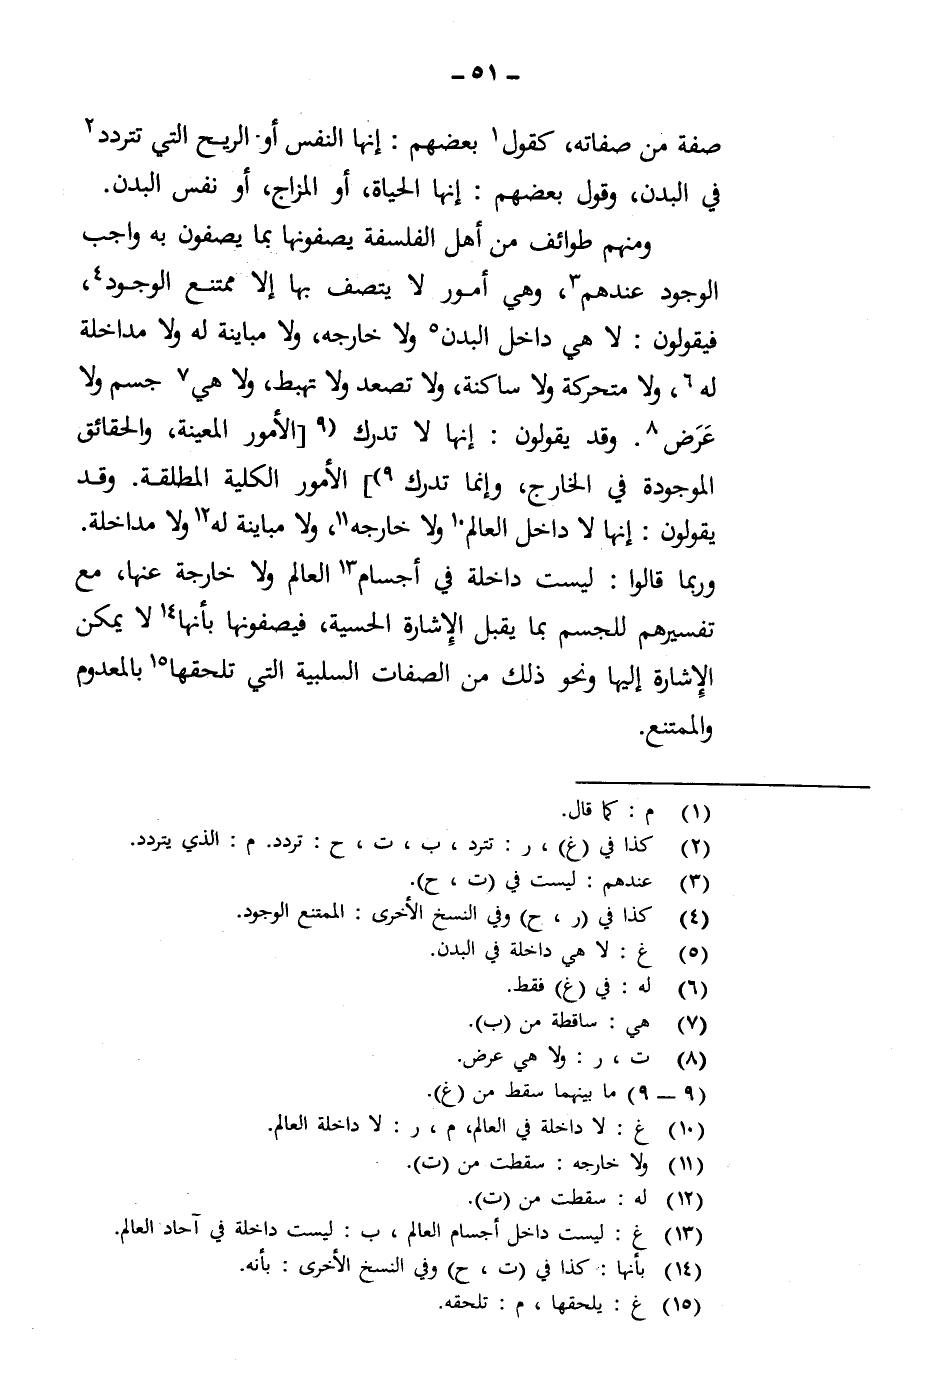 ـ ٥١ ـ
صفة من صفاته، كقول١ بعضهم : إنها النفس أو الريح التي تتردد٢
في البدن، وقول بعضهم : إنها الحياة، أو المزاج، أو نفس البدن.
ومنهم طوائف من أهل الفلسفة يصفونها بما يصفون به واجب
الوجود عندهم٣، وهي أمور لا يتصف بها إلا ممتنع الوجود٤،
فيقولون : لا هي داخل البدن٥ ولا خارجه، ولا مباينة له ولا مداخلة
له٦، ولا متحركة ولا ساكنة، ولا تصعد ولا تهبط، ولا هي٧ جسم ولا
عَرَض٨. وقد يقولون : إنها لا تدرك (٩ [الأمور المعينة، والحقائق
الموجودة في الخارج، وإنما تدرك ٩)] الأمور الكلية المطلقة. وقد
يقولون : إنها لا داخل العالم١٠ ولا خارجه١١، ولا مباينة له١٢ ولا مداخلة.
وربما قالوا : ليست داخلة في أجسام١٣ العالم ولا خارجة عنها، مع
تفسيرهم للجسم بما يقبل الإشارة الحسية، فيصفونها بأنها١٤ لا يمكن
الإشارة إليها ونحو ذلك من الصفات السلبية التي تلحقها١٥ بالمعدوم
والممتنع.
(١) م : كما قال.
(٢) كذا في (غ) ، ر : تترد ، ب ، ت ، ح : تردد. م : الذي يتردد.
(٣) عندهم : ليست في (ت ، ح).
(٤) كذا في (ر ، ح) وفي النسخ الأخرى : الممتنع الوجود.
(٥) غ : لا هي داخلة في البدن.
(٦) له : في (غ) فقط.
(٧) هي : ساقطة من (ب).
(٨) ت ، ر : ولا هي عرض.
(٩ ــ ٩) ما بينهما سقط من (غ).
(١٠) غ : لا داخلة في العالم، م ، ر : لا داخلة العالم.
(١١) ولا خارجه : سقطت من (ت).
(١٢) له : سقطت من (ت).
(١٣) غ : ليست داخل أجسام العالم ، ب : ليست داخلة في آحاد العالم.
(١٤) بأنها : كذا في (ت ، ح) وفي النسخ الأخرى : بأنه.
(١٥) غ : يلحقها ، م : تلحقه.